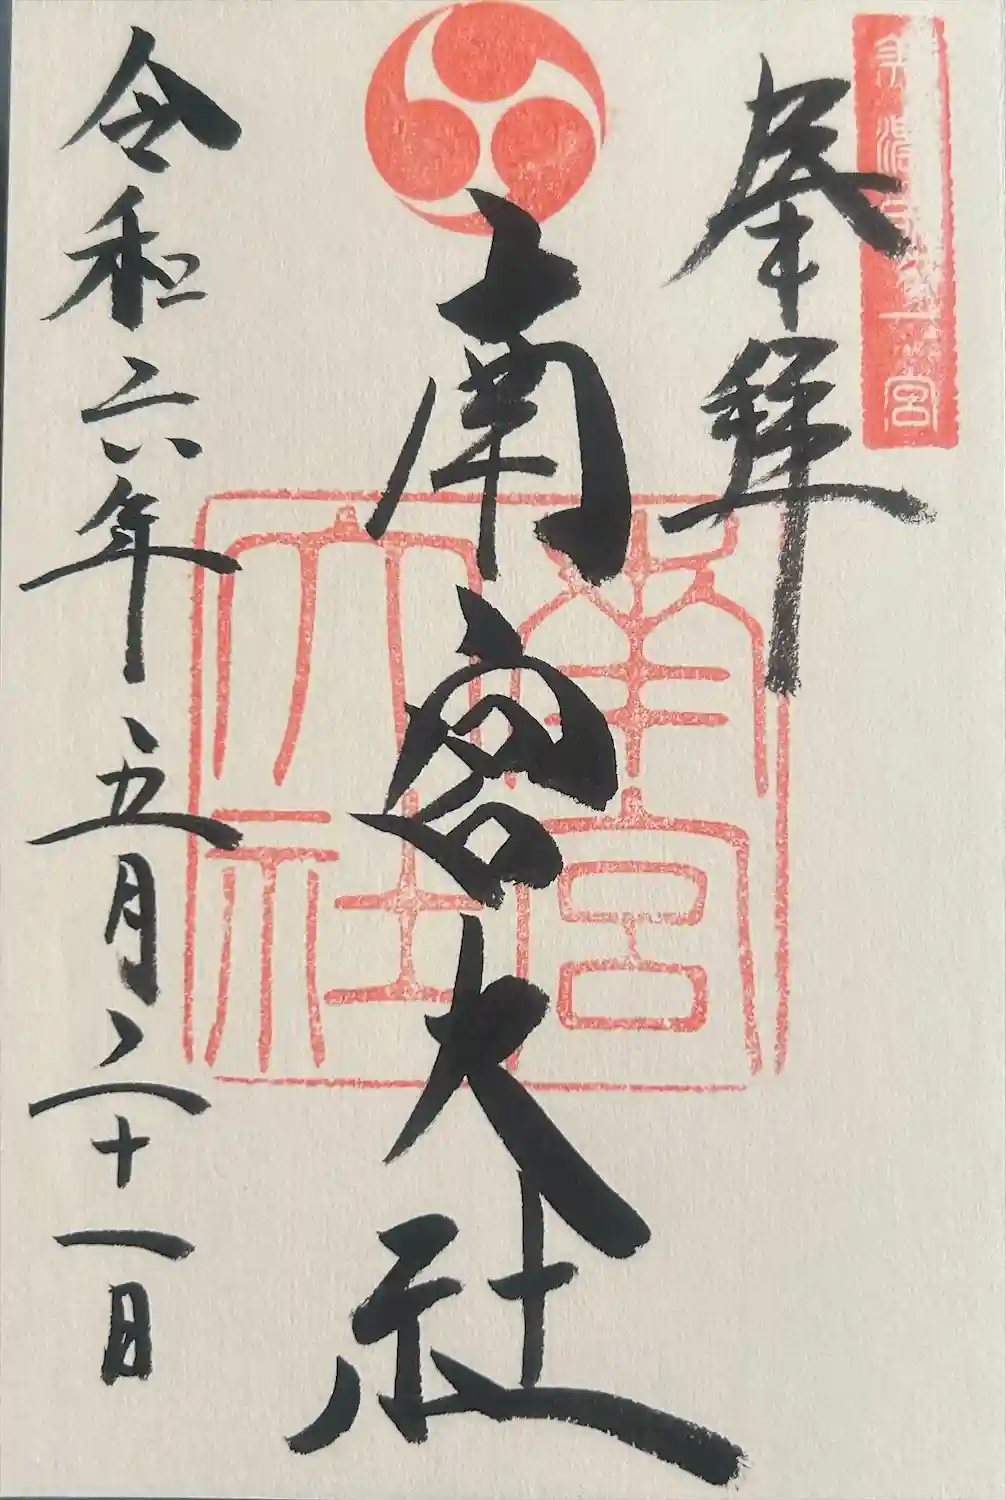 奉拝
美濃國一宮
南宮大社
南宮大社
令和六年五月二十一日